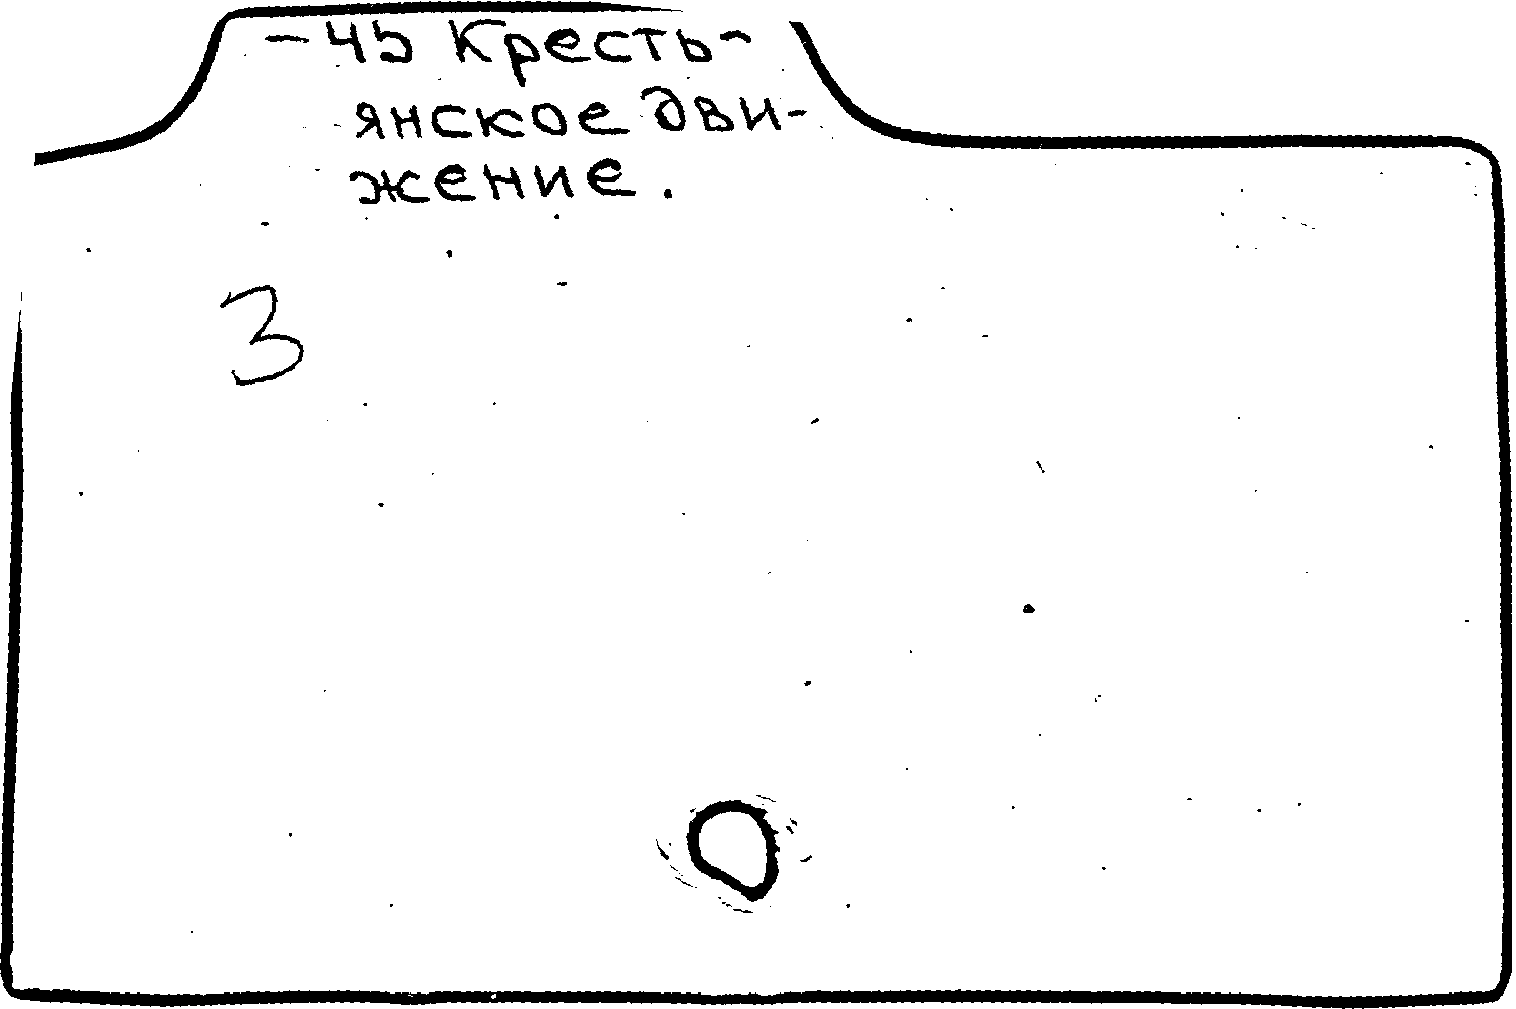 -45 Кресть-
янское дви-
жение.
3